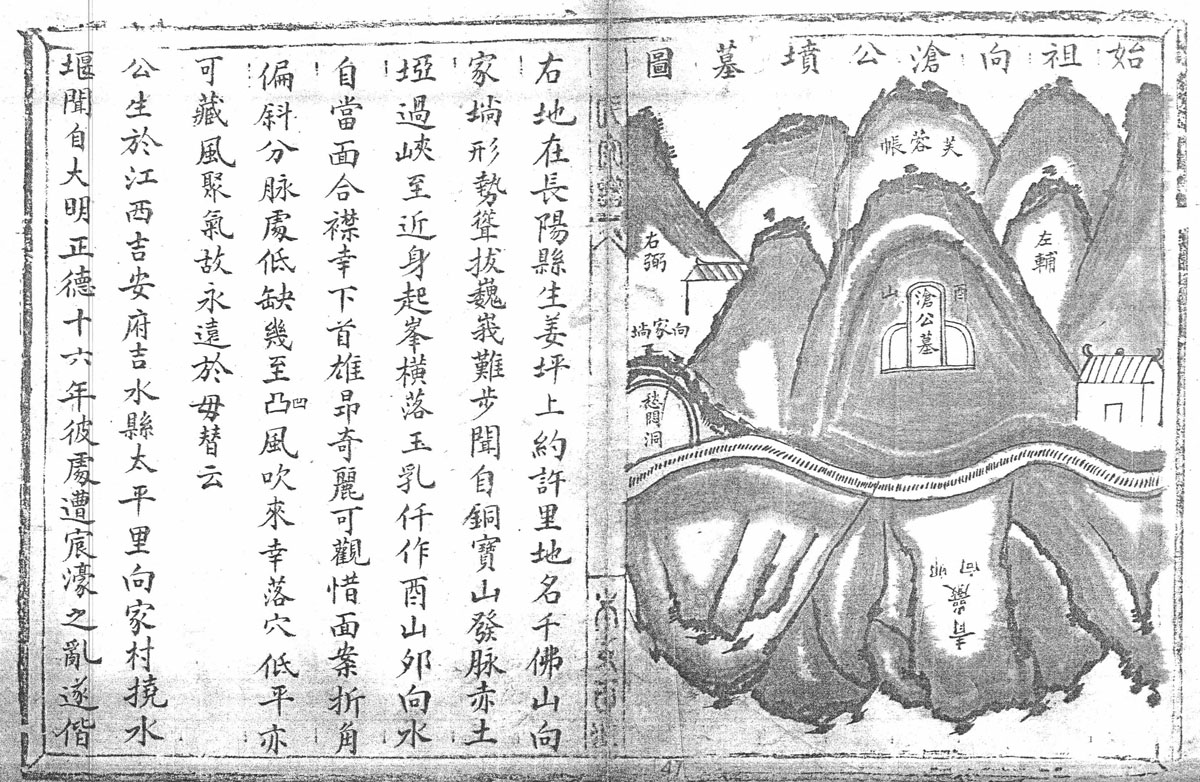 始祖向滄公墳墓圖
芙蓉帳
左輔
右弼
酉
山
滄公墓
向家塆
洞
青巖
向卯
右地在長陽縣生姜坪上約許里地名千佛山向
家塆形勢聳拔巍峩難步聞自銅寶山發脉赤土
埡過峽至近身起峯橫落玉乳仟作酉山夘向水
自當面合襟幸下首雄昻奇麗可觀惜面案折角
偏斜分脉處低缺幾至凸凹風吹來幸落穴低平亦
可藏風聚氣故永遠於毋替云
公生於江西吉安府吉水縣太平里向家村撓水
堰聞自大明正德十六年彼處遭宸濠之亂遂偕